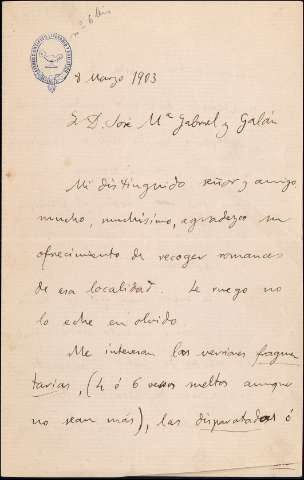 nº 6 bis
8 Marzo 1903
S. D. José Mª Gabriel y Galán
Mi distinguido señor y amigo,
mucho, muchísimo, agradezco su
ofrecimiento de recoger romances
de esa localidad. Le ruego no
lo eche en olvido
Me interesan las versiones fragmen
tarias, (4 ó 6 versos sueltos aunque
no sean más), las disparatadas ó